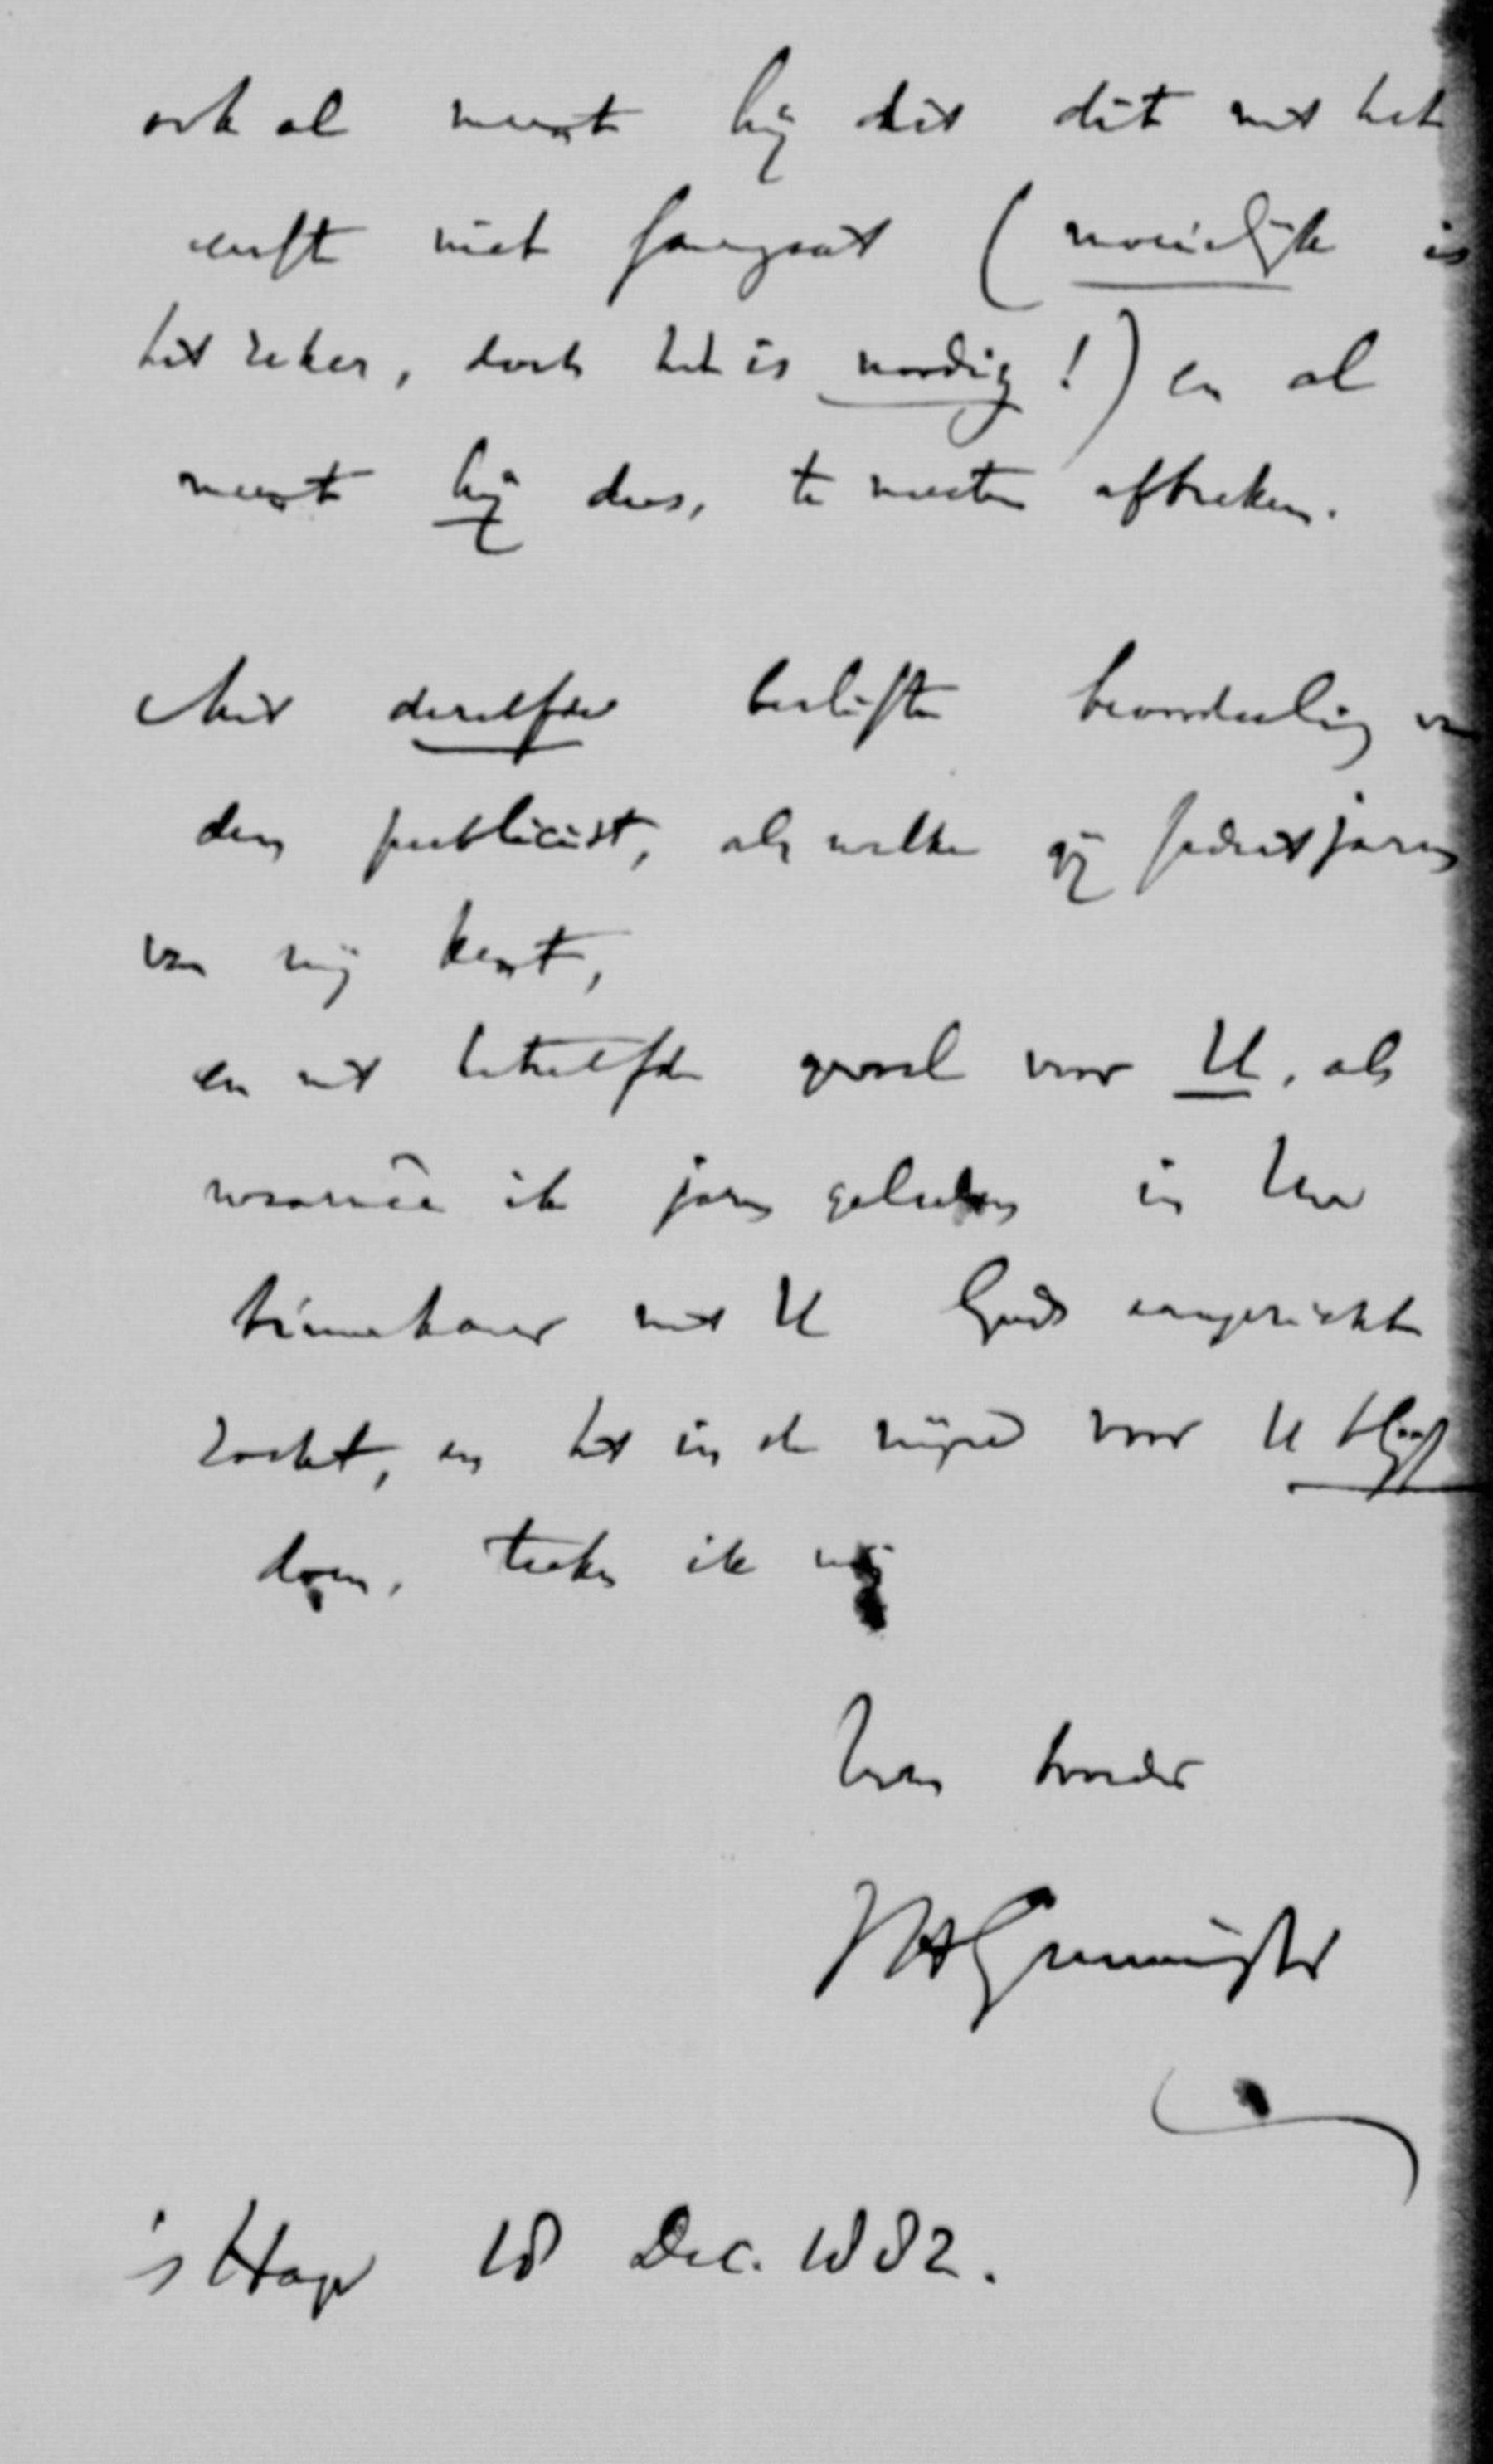 ook al meent hij dat dit met het
eerste niet samengaat (moeielijk is
het zeker, doch het is noodig!) en al
meent hij dus, te moeten afbreken.
Met dezelfde besliste beoordeeling van
den publicist, als welke gij sedert jaren
van mij kent,
en met hetzelfde gevoel voor U, als
waarmêe ik jaren geleden in Uw
binnenkamer met U Gods aangezicht
zocht, en het in de mijne voor U blijf
doen, teeken ik mij
Uwen broeder
's Hage 18 Dec. 1882.